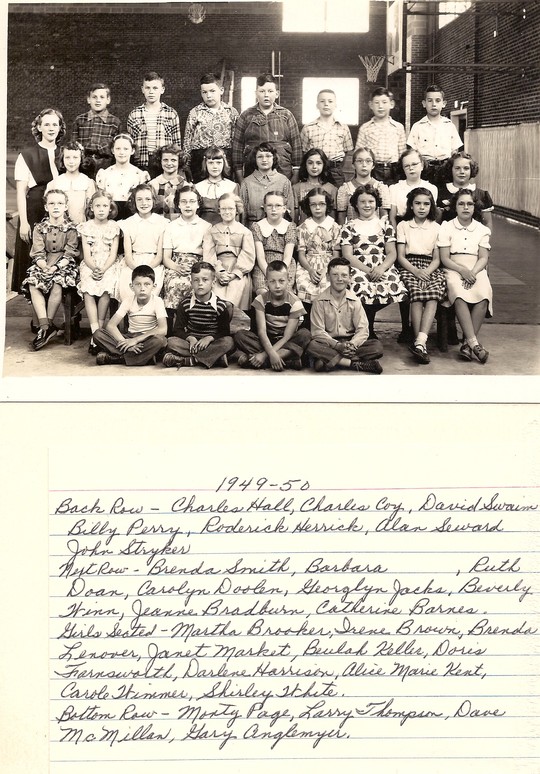 1949-50
Back Row - Charles Hall, Charles Coy, David Swaim
Billy Perry, Roderick Herrick, Alan Seward
John Stryker
Next Row - Brenda Smith, Barbara , Ruth
Doan, Carolyn Doolen, Georglyn Jacks, Beverly
Winn, Jeanne Bradburn, Catherine Barnes.
Girls Seated - Martha Brooker, Irene Brown, Brenda
Lenover, Janet Market, Beulah Keller, Doris
Farnsworth, Darlene Harrison, Alice Marie Kent,
Carole Wimmer, Shirley White.
Bottom Row - Monty Page, Larry Thompson, Dave
McMillan, Gary Anglemyer.